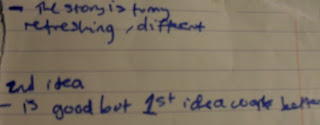 - The story is funny
refreshing, different
2nd idea
- is good but 1st idea works better